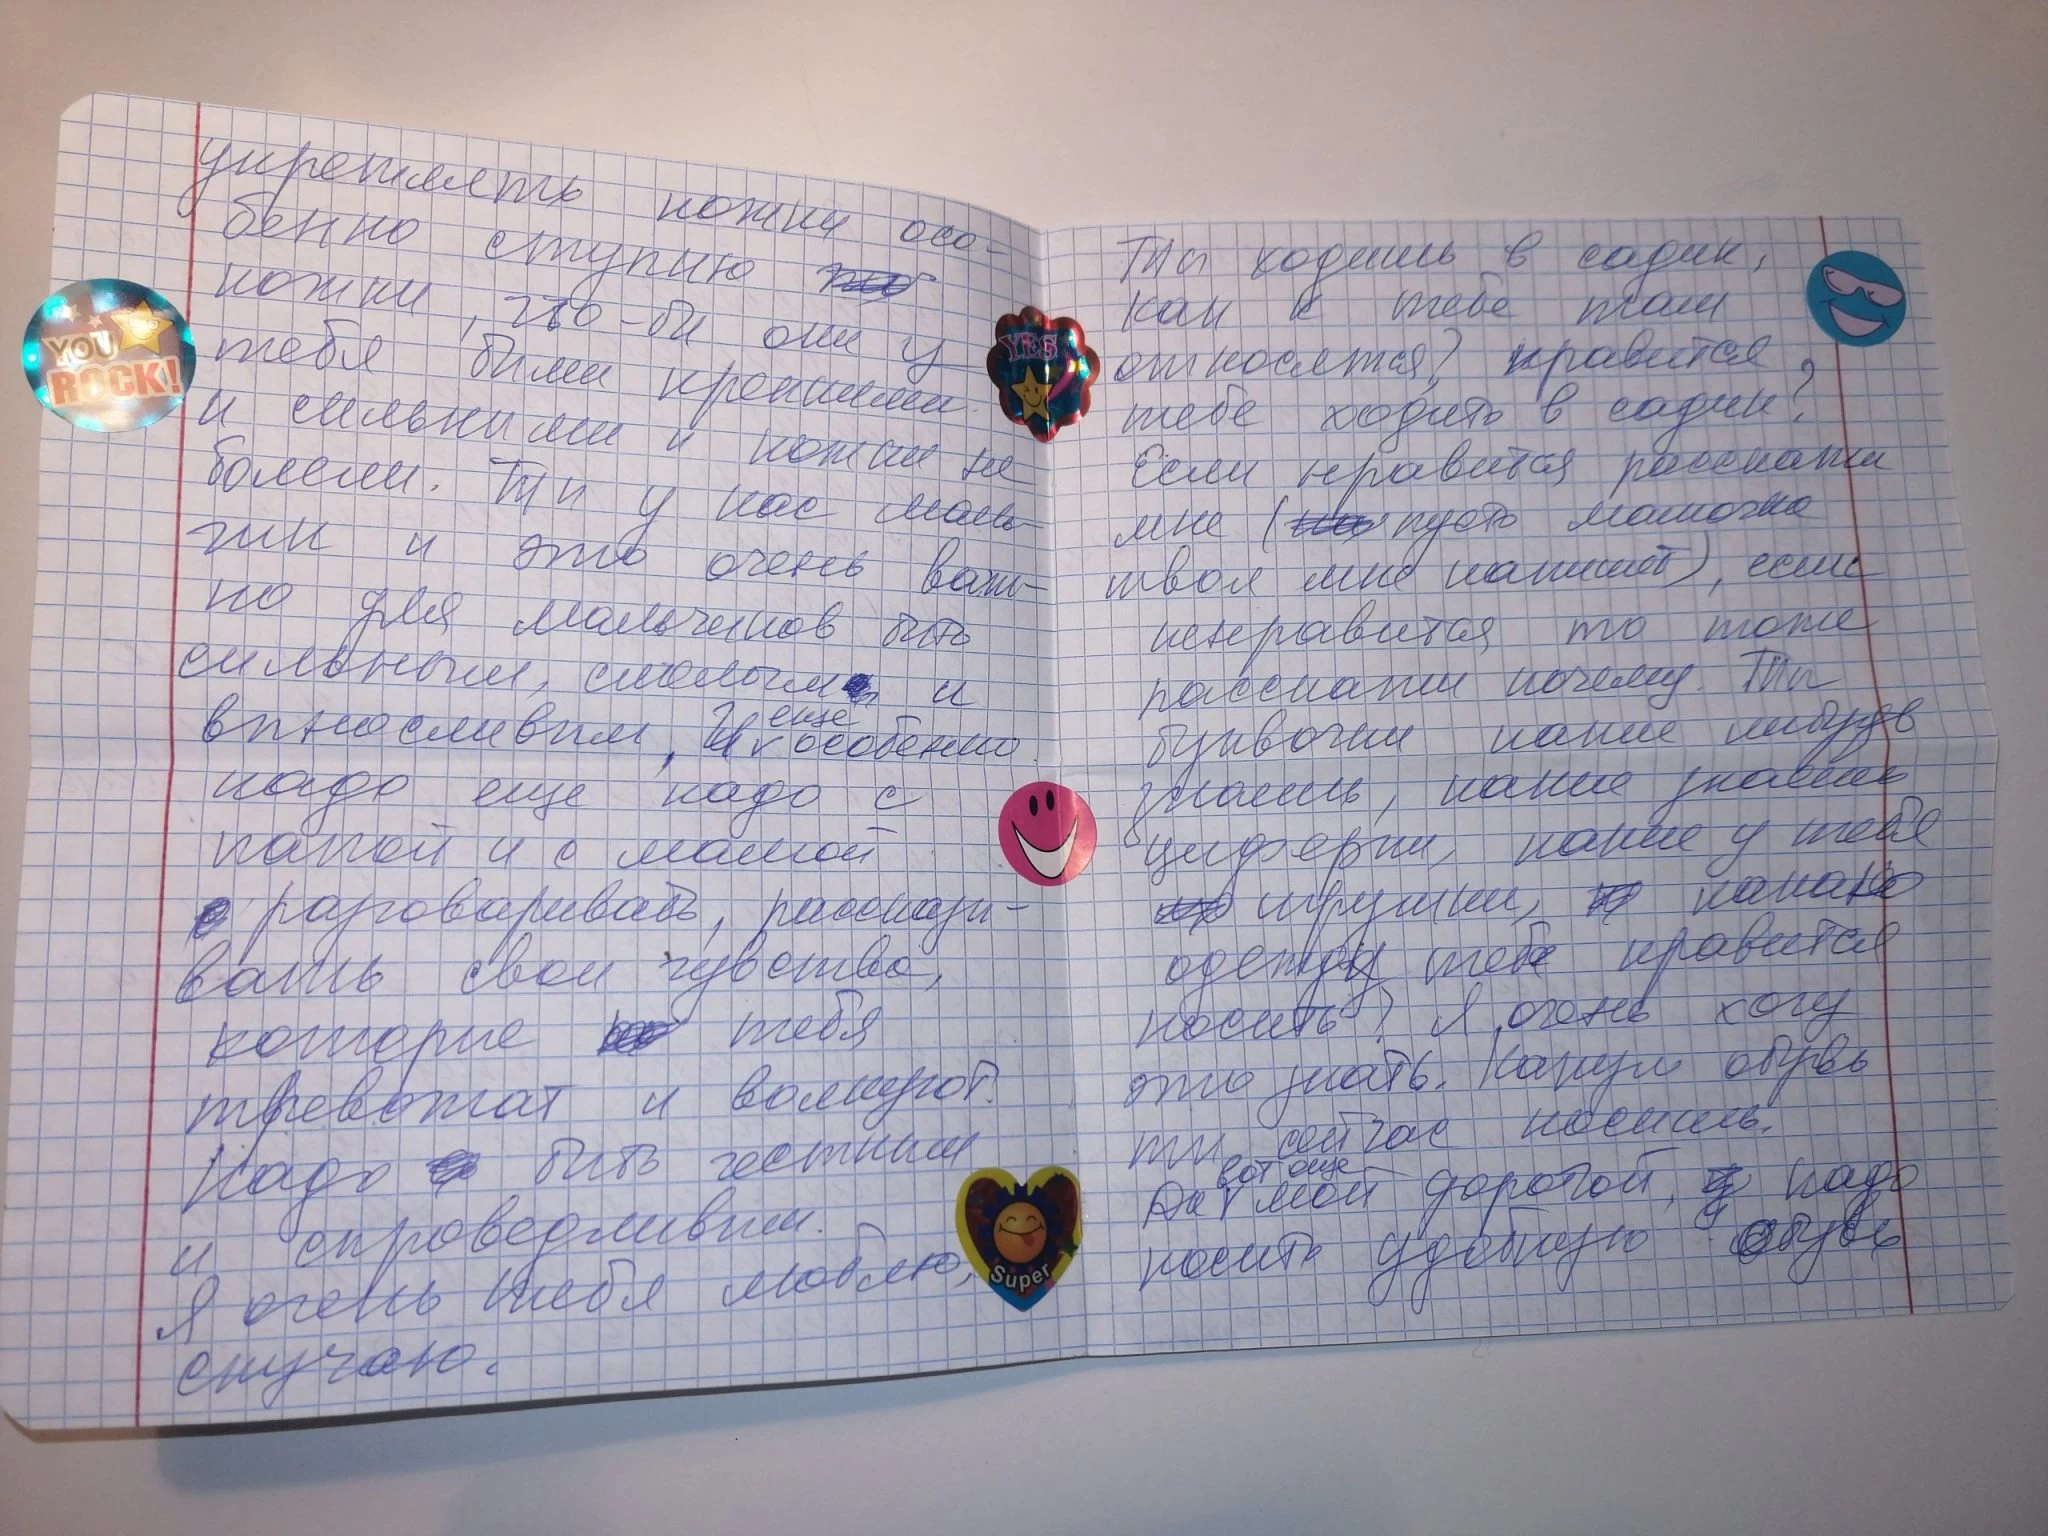 укреплять ножки осо-
бенно ступню
ножки, что-бы они у
тебя были крепкими
и сильными и ножки не
болели. Ты у нас маль-
чик и это очень важ-
но для мальчиков быть
сильным, смелым и
выносливым, И еще особенно
надо еще надо с
папой и с мамой
разговаривать, рассказы-
вать свои чувства,
которые тебя
тревожат и волнуют.
Надо быть честным
и справедливым.
Я очень тебя люблю,
скучаю.
Ты ходишь в садик,
как к тебе там
относятся? нравится
тебе ходить в садик?
Если нравится расскажи
мне (пусть мамочка
твоя мне напишет), если
ненравится то тоже
расскажи почему. Ты
буквочки какие нибудь
знаешь, какие знаешь
циферки, какие у тебя
игрушки, какаю
одежду тебе нравится
носить? Я очень хочу
это знать. Какую обувь
ты сейчас носишь.
вот еще мой дорогой, надо
носить удобную обувь
YOU ROCK!
YES
Super